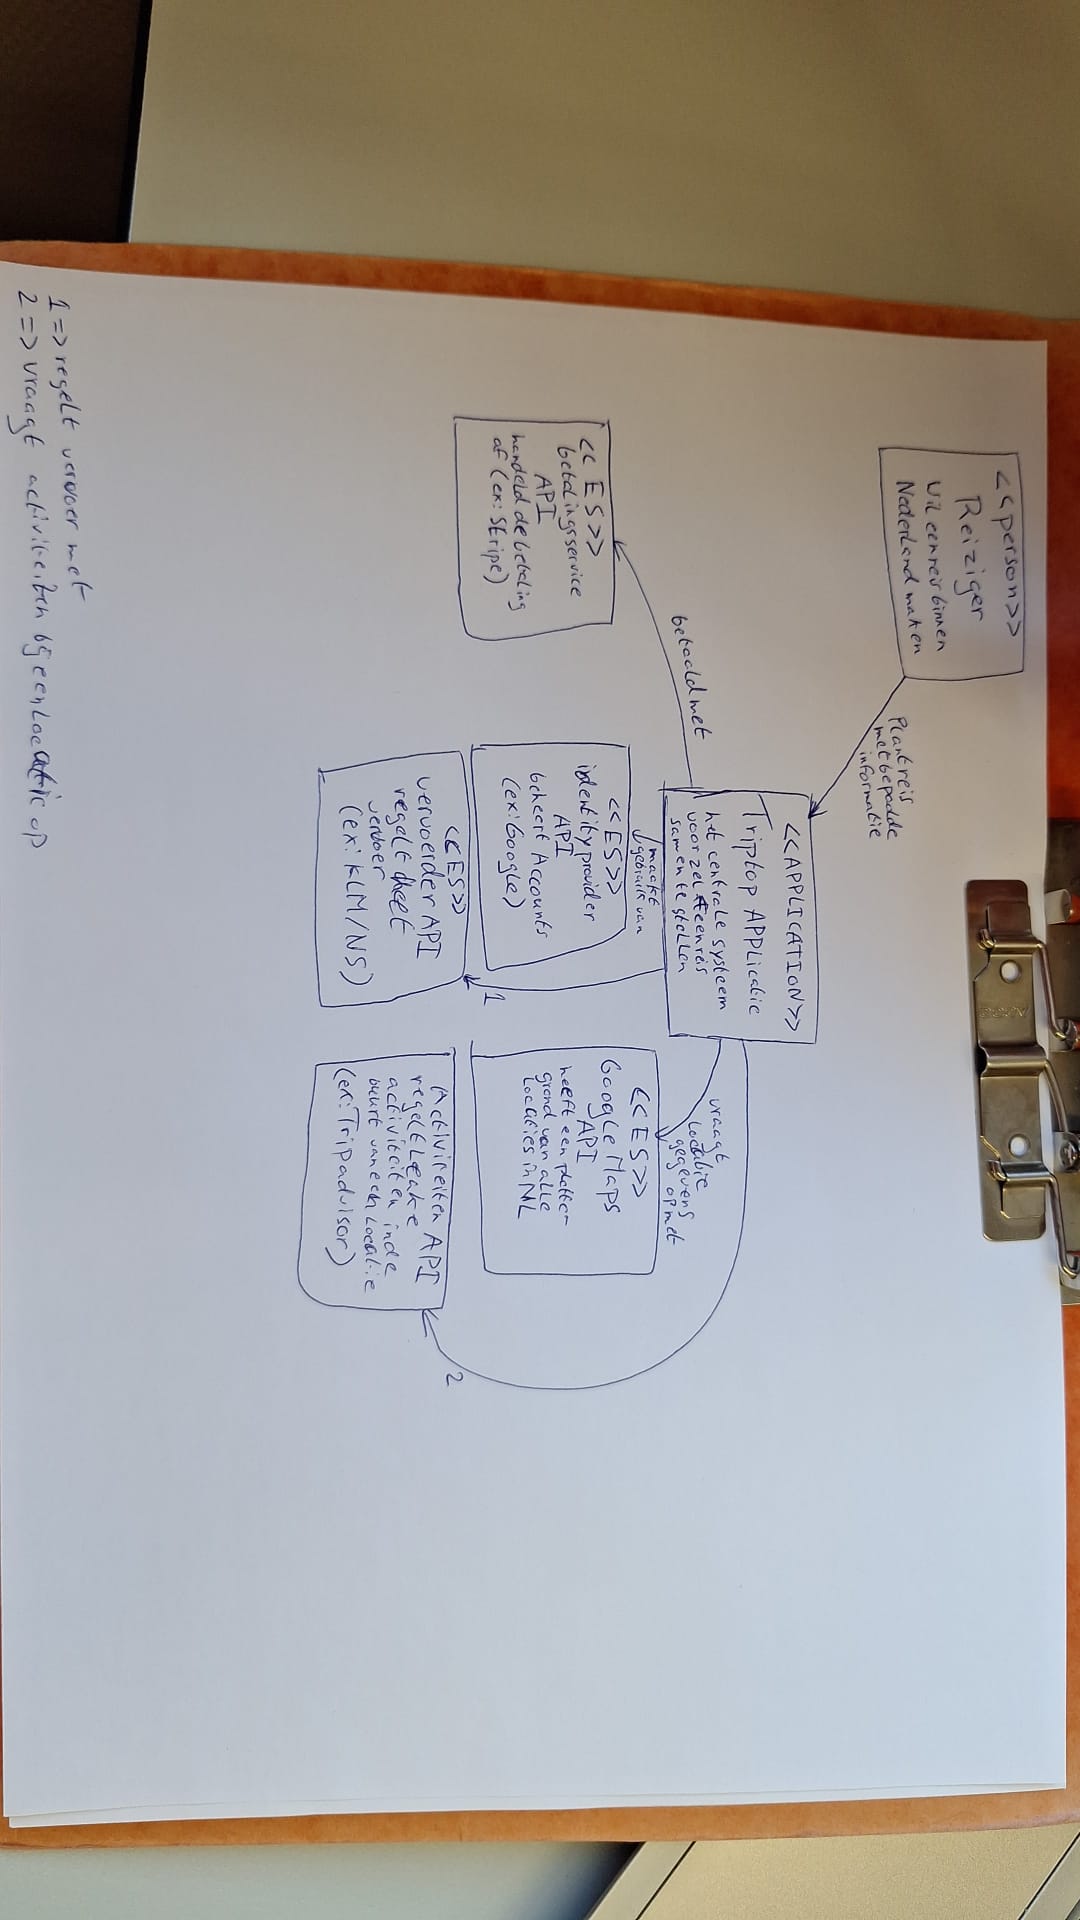 <<person>>
Reiziger
Wil een reis binnen
Nederland maken
Plant reis
met bepaalde
informatie
<<APPLICATION>>
Triptop APPLicatie
het centrale systeem
voor zelf een reis
samen te stellen
betaald met
maakt
gebruik van
vraagt
Locatie
gegevens
op met
<<ES>>
betalingsservice
API
handeld de betaling
af (ex: Stripe)
<<ES>>
identity provider
API
beheert Accounts
(ex: Google)
1
<<ES>>
Google Maps
API
heeft een platte-
grond van alle
Locaties in NL
<<ES>>
vervoerder API
regelt het
vervoer
(ex: KLM/NS)
2
Activiteiten API
regelt Leuke
activiteiten in de
buurt van een Locatie
(ex: Tripadvisor)
1 => regelt vervoer met
2 => vraagt activiteiten bij een Locatie op